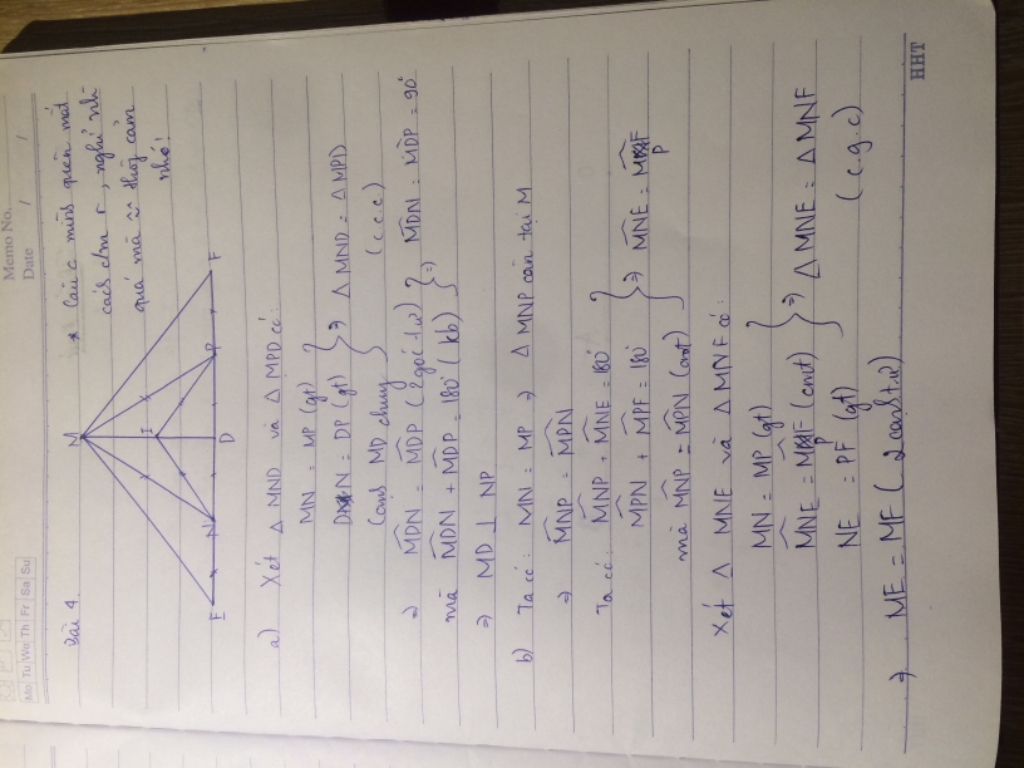 Memo No.
Date / /
Mo Tu We Th Fr Sa Su
Bài 4
* Câu c mình quên mất
cách chm r, nghĩ nh
quá mà ~ thông cảm
nhó!
M
I
E N D P F
a) Xét Δ MND và Δ MPD có:
MN = MP (gt)
DN = DP (gt) } => Δ MND = Δ MPD
Cạnh MD chung (c.c.c)
=> MDN = MDP (2 góc t.ư)
mà MDN + MDP = 180° (kb) } => MDN = MDP = 90°
=> MD ⊥ NP
b) Ta có: MN = MP => Δ MNP cân tại M
=> MNP = MPN
Ta có: MNP + MNE = 180°
MPN + MPF = 180° } => MNE = MPF
mà MNP = MPN (cmt)
Xét Δ MNE và Δ MNF có:
MN = MP (gt)
MNE = MPF (cmt) } => Δ MNE = Δ MNF
NE = PF (gt) (c.g.c)
=> ME = MF (2 cạnh t.ư)
HHT